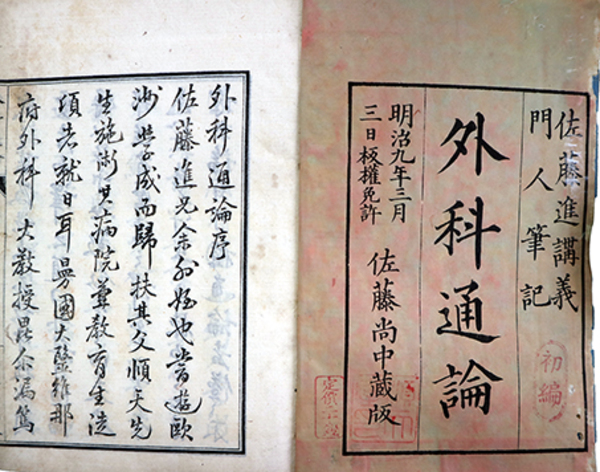 佐藤進講義
門人筆記
初編
外科通論
明治九年三月
三日板權免許
佐藤尚中藏版
外科通論序
佐藤進兄余外姪也嘗遊歐
洲学成而歸扶其父順天先
生施術其病院兼教育生徒
頃者就日耳曼國大醫維那
府外科大教授毘尒漏篤